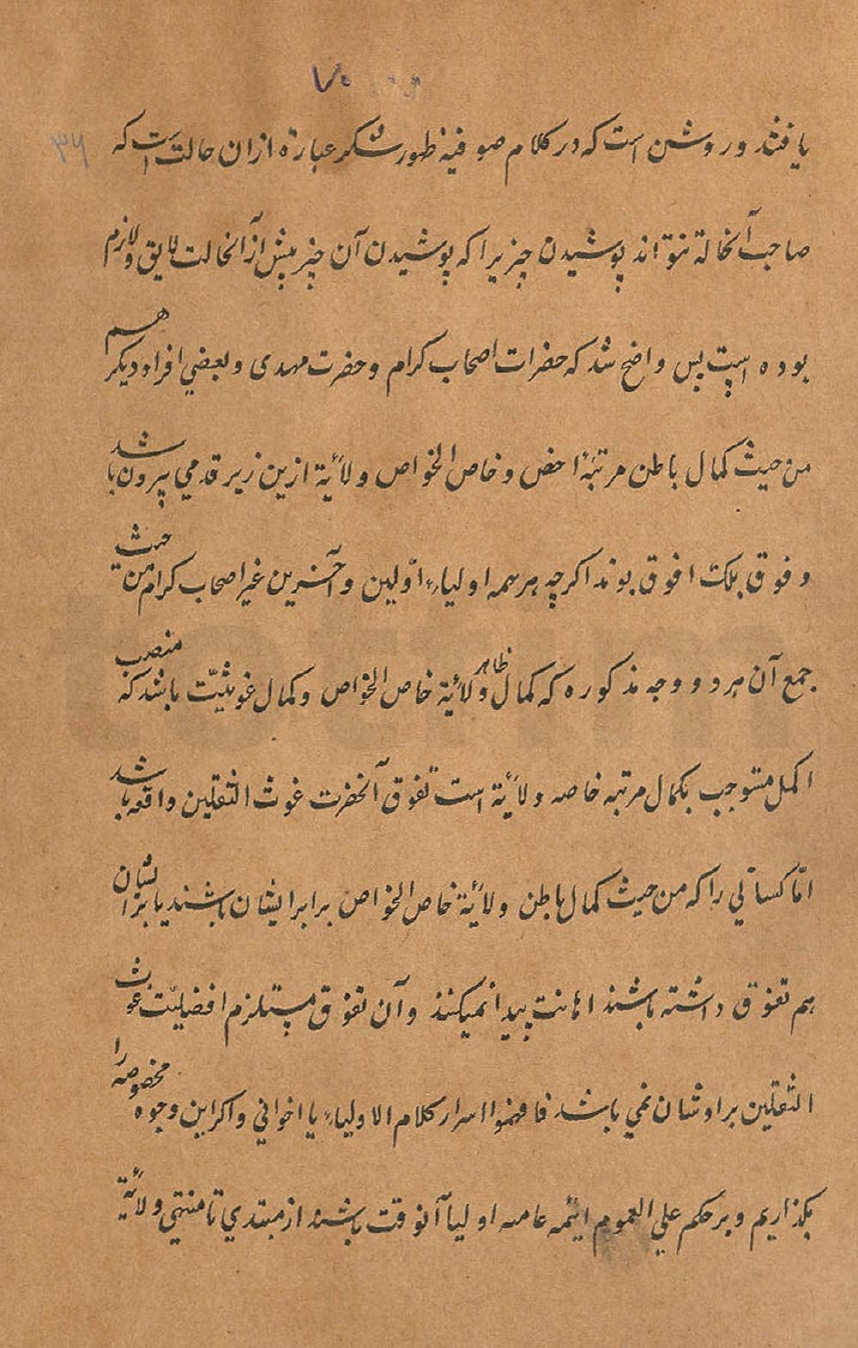 ٧٠
٣٦
یافتند و روشن است که در کلام صوفیه ظهور سکر عبارة ازان حالت است که
صاحب آنحالة نتواند پوشیدن چیزیرا که پوشیدن آن چیز پیش از آنحالت لایق و لازم
بوده است پس واضح شد که حضرات اصحاب کرام و حضرت مهدی و بعضي افراد دیکر هم
من حیث کمال باطن مرتبهٔ اخص و خاص الخواص ولایة ازین زیر قدمي بیرون باشد
و فوق بلکه افوق بوند اکرچه بر همه اولیاء اوّلین و آخرین غیر اصحاب کرام من حیث
جمع آن هر دو وجه مذکوره که کمال ظاهر ولایة خاص الخواص و کمال غوثیّت باشد که منصب
اکمل مستوجب بکمال مرتبه خاصه ولایة است تفوق آنحضرت غوث الثقلین واقع باشد
امّا کسانی را که من حیث کمال باطن ولایة خاص الخواص برابر ایشان باشند یا بر ایشان
هم تفوق داشته باشند اهانت پیدا نمیکند و آن تفوق مستلزم افضلیّت غوث
الثقلین بر اوشان نمي باشد فافهموا اسرار کلام الاولیاء یا اخواني و اکر این وجوه مخصوصه را
بکذاریم و بر حکم علي العموم ائمه عامه اولیا آنوقت باشند از مبتدي تا منتهي ولایة